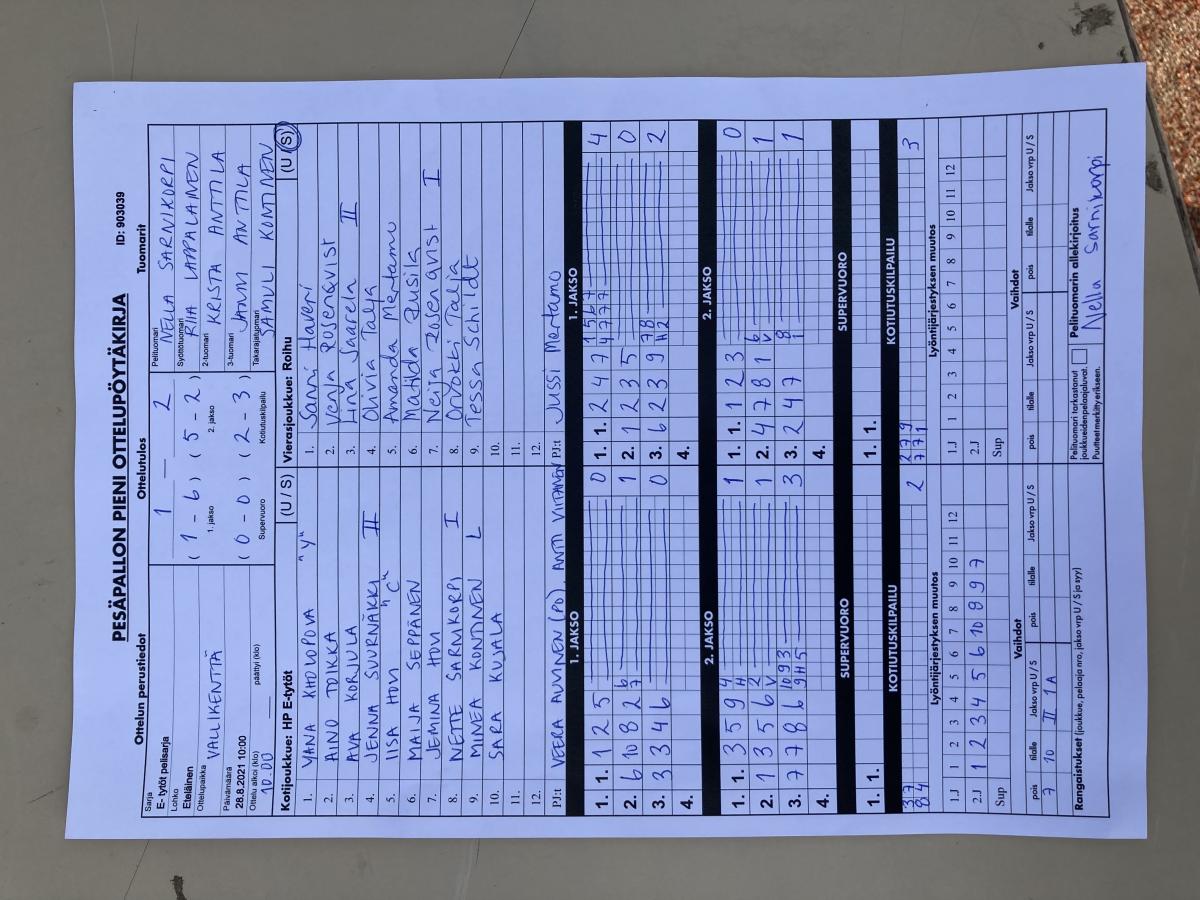 PESÄPALLON PIENI OTTELUPÖYTÄKIRJA
ID: 903039
Ottelun perustiedot
Sarja
E- tytöt pelisarja
Lohko
Eteläinen
Ottelupaikka
VALLIKENTTÄ
Päivämäärä
28.8.2021 10:00
Ottelu alkoi (klo) päättyi (klo)
10.00
Ottelutulos
1 – 2
(1 - 6) (5 - 2)
1. jakso 2. jakso
(0 - 0) (2 - 3)
Supervuoro Kotiutuskilpailu
Tuomarit
Pelituomari
NELLA SARNIKORPI
Syöttötuomari
RIIA LAPPALAINEN
2-tuomari
KRISTA ANTTILA
3-tuomari
JANNI ANTTILA
Takarajatuomari
SAMULI KONTINEN
Kotijoukkue: HP E-tytöt (U / S)
1. YANA KHOLOPOVA "Y"
2. AINO TOIKKA
3. AVA KORJULA
4. JENNA SUURNÄKKI II
5. IISA HOVI "C"
6. MAIJA SEPPÄNEN
7. JEMINA HOVI
8. NETTE SARNIKORPI I
9. MINEA KONTINEN L
10. SARA KUJALA
11.
12.
PJ:t VEERA AUVINEN (PO), ANTTI VIITANEN
Vierasjoukkue: Roihu (U / S)
1. Sanni Haveri
2. Venja Rosenqvist
3. Lina Saarela II
4. Olivia Talja
5. Amanda Mertamo
6. Matilda Rusila
7. Neija Rosenqvist I
8. Orvokki Talja
9. Tessa Schildt
10.
11.
12.
PJ:t Jussi Mertamo
1. JAKSO
1. 1. 1 2 5 0
2. 6 10 8 2 6 7 1
3. 3 3 4 6 0
4.
1. JAKSO
1. 1. 2 4 7 1 5 6 7 4 7 7 7 4
2. 1 2 3 5 0
3. 6 2 3 9 7 8 H 2 2
4.
2. JAKSO
1. 1. 3 5 9 4 H 1
2. 1 3 5 6 2 V 1
3. 7 7 8 6 10 9 3 9 H 5 3
4.
2. JAKSO
1. 1. 1 2 3 0
2. 4 7 8 1 6 V 1
3. 2 4 7 8 1 1
4.
SUPERVUORO
1. 1.
SUPERVUORO
1. 1.
KOTIUTUSKILPAILU
3 7 2
8 4
KOTIUTUSKILPAILU
2 7 9 3
7 7 1
Lyöntijärjestyksen muutos
1.J 1 2 3 4 5 6 7 8 9 10 11 12
2.J 1 2 3 4 5 6 10 8 9 7
Sup
Lyöntijärjestyksen muutos
1.J 1 2 3 4 5 6 7 8 9 10 11 12
2.J
Sup
Vaihdot
pois tilalle Jakso vrp U / S pois tilalle Jakso vrp U / S
7 10 II 1A
Vaihdot
pois tilalle Jakso vrp U / S pois tilalle Jakso vrp U / S
Rangaistukset (joukkue, pelaaja nro, jakso vrp U / S ja syy)
Pelituomari tarkastanut
joukkueidenpelaajaluvat.
Puutteet merkittyerikseen.
Pelituomarin allekirjoitus
Nella Sarnikorpi